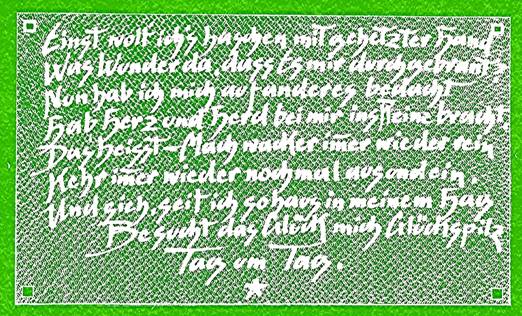 Einst wollt ich's haschen mit gehetzter Hand
Was Wunder da, dass Es mir durchgebrannt
Nun hab ich mich auf anderes bedacht
Hab Herz und Herd bei mir ins Reine bracht
Das heisst – Mach wacker im̄er wieder rein
Kehr im̄er wieder nochmal aus und ein.
Und sieh, seit ich so haus in meinem Haus
Besucht das Glück mich Glückspilz
Tag um Tag.